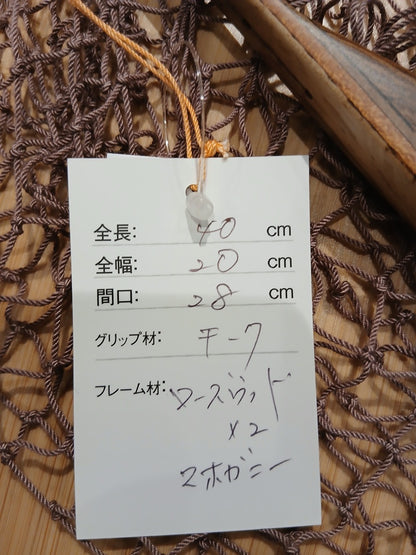 全長: 40 cm
全幅: 20 cm
間口: 28 cm
グリップ材: チーク
フレーム材: ローズウッド
×2
マホガニー